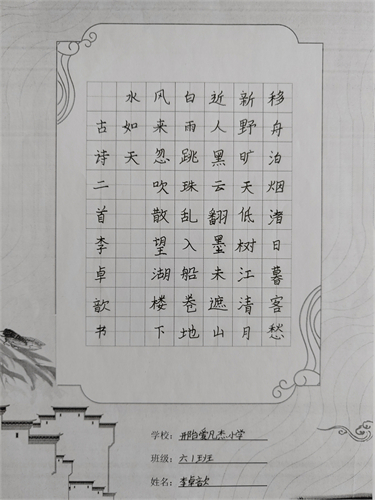 移舟泊烟渚日暮客愁
新野旷天低树江清月
近人黑云翻墨未遮山
白雨跳珠乱入船卷地
风来忽吹散望湖楼下
水如天
古诗二首李卓歆书
学校：邢台爱凡杰小学
班级：六1班
姓名：李卓歆